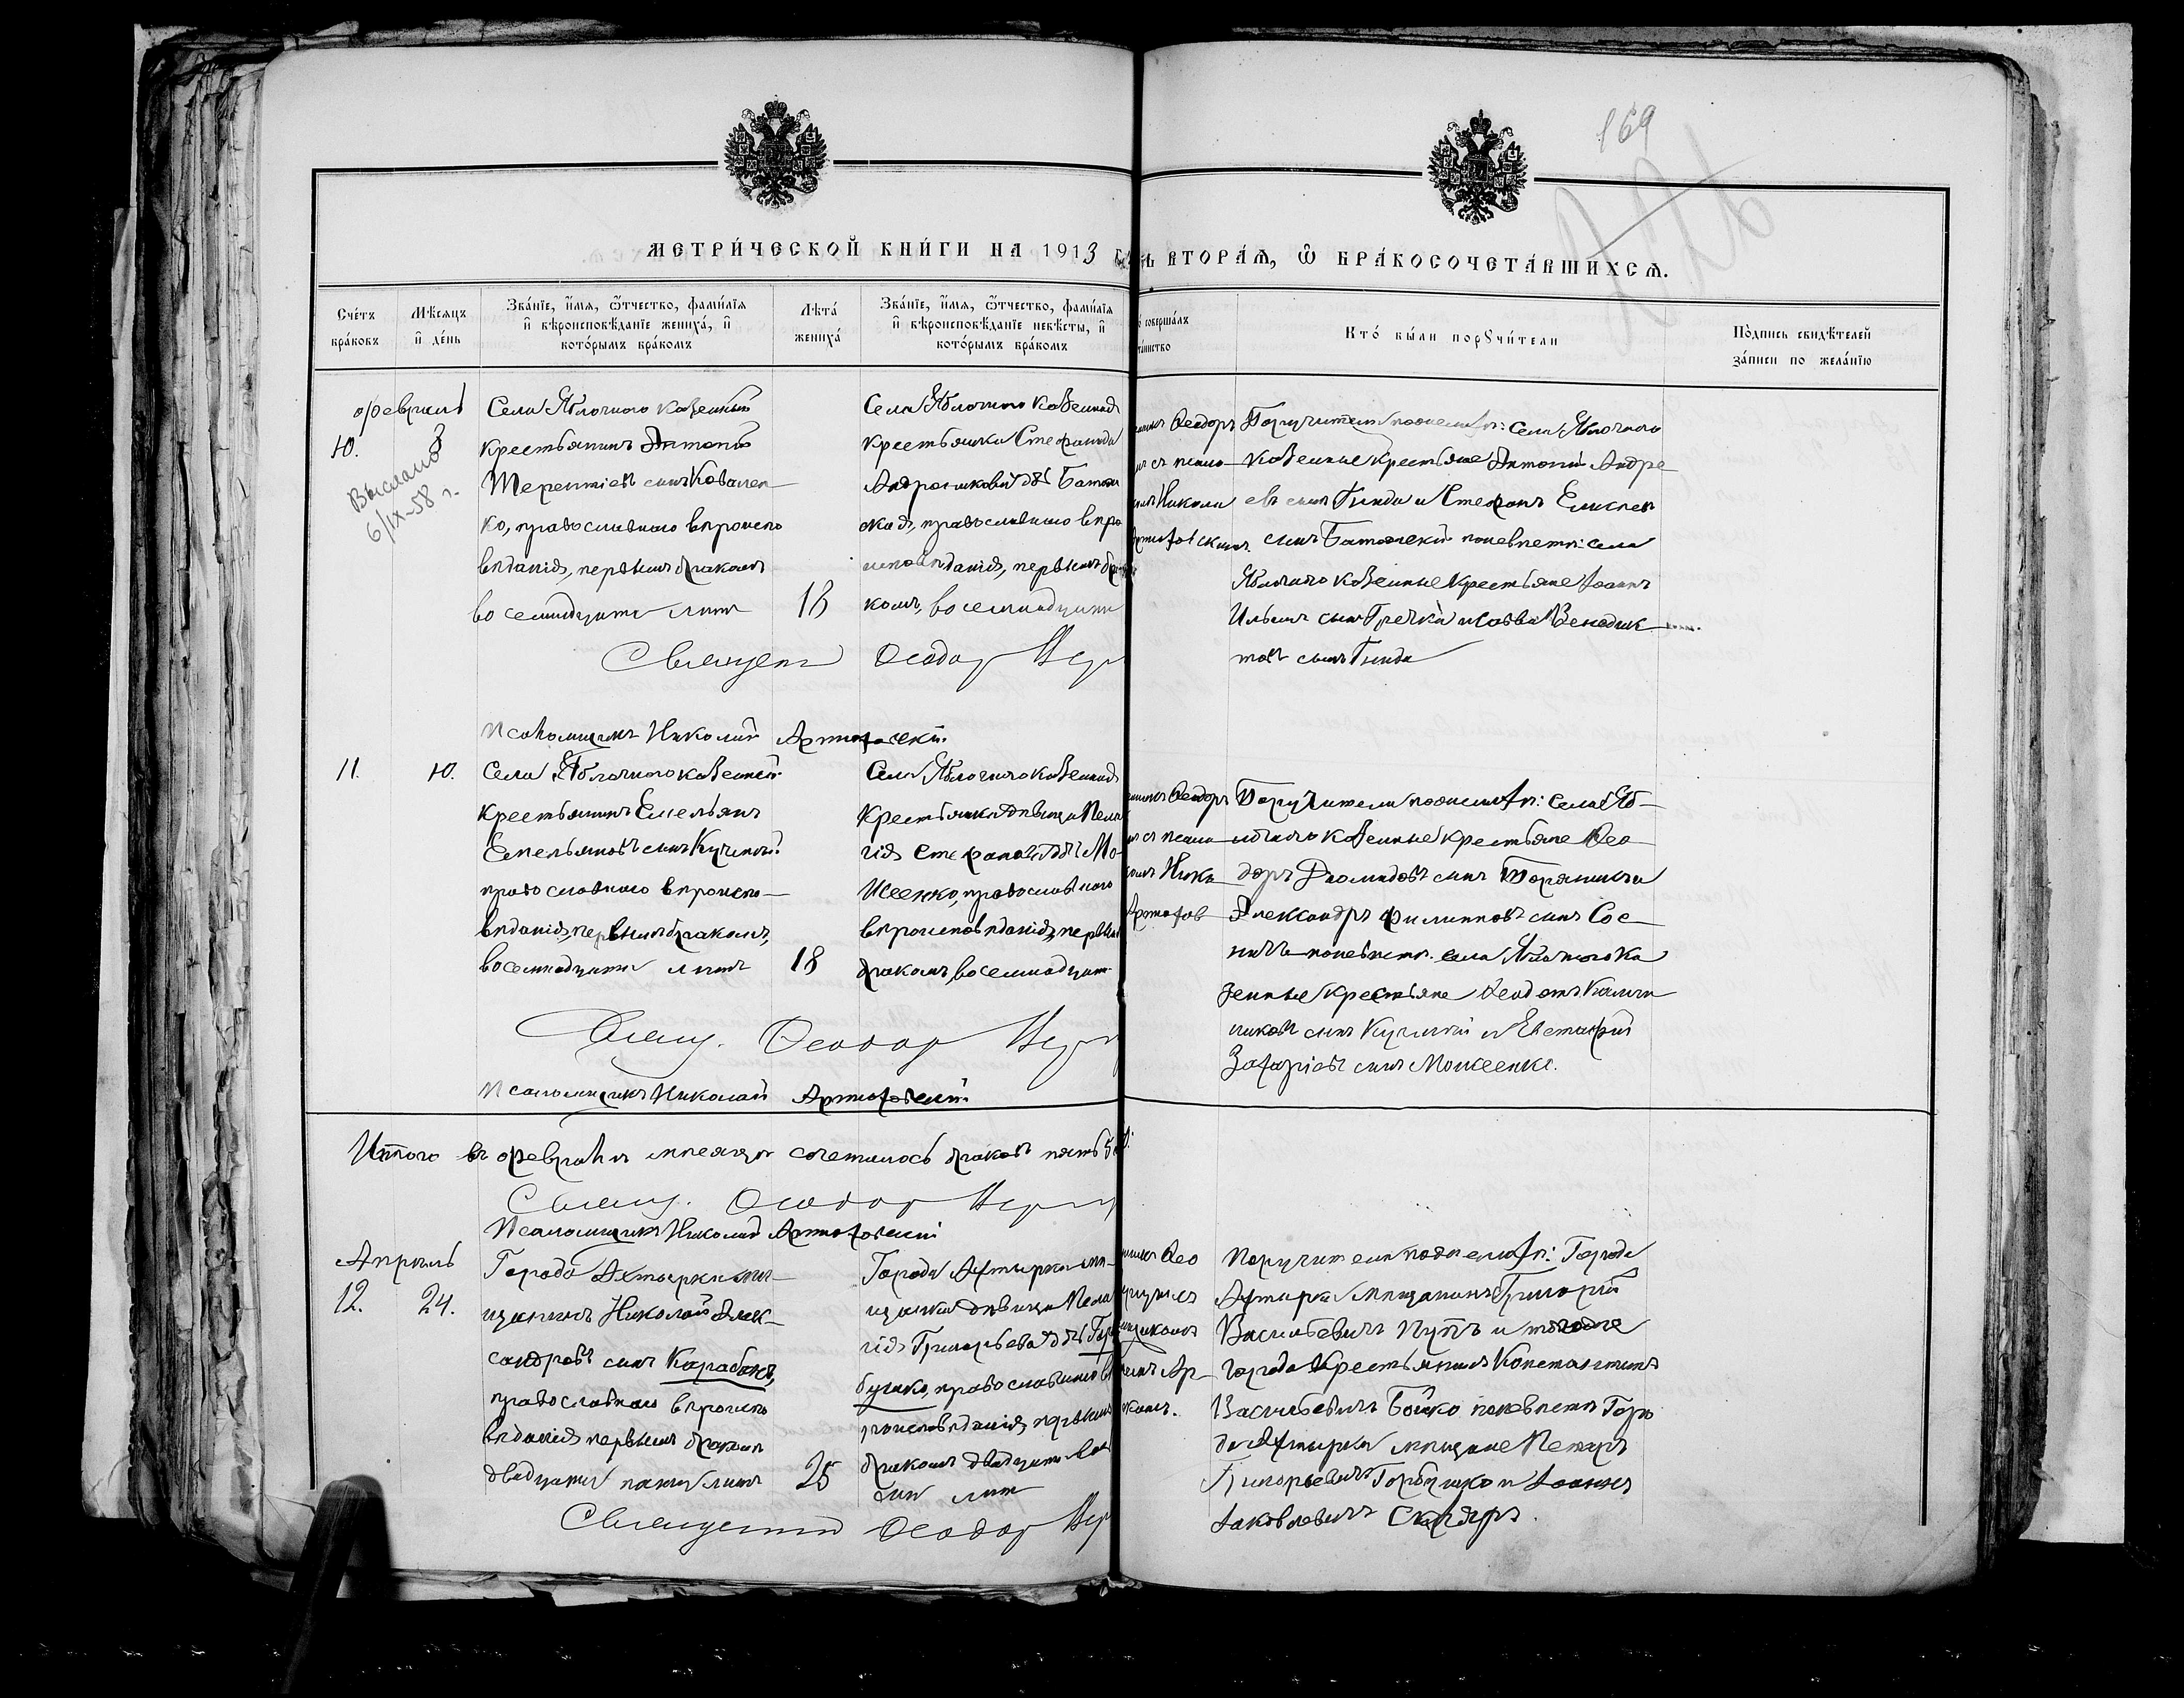 169
МЕТРИ́ЧЕСКОЙ КНИ́ГИ НА 1913
ВТОРА́Я, Ѡ БРА́КОСОЧЕТА́ВШИХСЯ.
Сче́тъ бра́ковъ
Мѣ́сяцъ и де́нь
Зва́нїе, и́мя, ѻ́тчество, фами́лїя
и вѣроисповѣ́данїе жениха́, и
кото́рымъ бра́комъ
Лѣта́ жениха́
Зва́нїе, и́мя, ѻ́тчество, фами́лїя
и вѣроисповѣ́данїе невѣ́сты, и
кото́рымъ бра́комъ
соверша́лъ
та́инство
Кто́ бы́ли порꙋчи́тели
По́дпись свидѣ́телей
за́писи по жела́нїю
Февраль
10.
3
Выслано
6/IX-58 г.
Села Яблочного казенный
крестьянинъ Антоній
Терентіевъ сынъ Ковален
ко, православнаго вѣроиспо
вѣданія, первымъ бракомъ
восемнадцати лѣтъ
18
Села Яблочного казенная
крестьянка Стефанида
православнаго вѣро
исповѣданія, первымъ бра
комъ, восемнадцати
Ѳеодоръ
съ псало
Николаи
Поручители по женихѣ: села Яблочного
казенные крестьяне Антоній Андре
евъ сынъ Гинда и Стефанъ
сынъ по невѣстѣ: села
Яблочного казенные крестьяне Іоаннъ
Ильинъ сынъ Гречка и Савва Венедик
товъ сынъ Гинда
Священ Ѳеодор
Псаломщикъ Николай Артюховскій
11.
10.
Села Яблочного казенный
крестьянинъ Емельянъ
Емельяновъ сынъ Кучмій
православнаго вѣроиспо-
вѣданія, первымъ бракомъ,
восемнадцати лѣтъ
18
Села Яблочного казенная
крестьянка дѣвица Пела
гія Стефанова дочь Мо-
исеенко, православнаго
вѣроисповѣданія, первымъ
бракомъ, восемнадцати
Ѳеодоръ
съ псало
Нико
Артюхов
Поручители по женихѣ: села Яб-
лочного казенные крестьяне Ѳео-
доръ Діомидовъ сынъ
Александръ Филипповъ сынъ Сос-
по невѣстѣ: села Яблочного ка
зенные крестьяне Ѳеодотъ Калин
никовъ сынъ Кучмій и Евстафій
Захаріевъ сынъ Моисеенко.
Свящ. Ѳеодор
Псаломщикъ Николай Артюховскій
Итого въ февралѣ мѣсяцѣ сочеталось браковъ пять 5
Свящ. Ѳеодор
Псаломщикъ Николай Артюховскій
Апрѣль
12.
24.
Города Ахтырки мѣ-
щанинъ Николай Алек-
сандровъ сынъ Карабанъ,
православнаго вѣроиспо
вѣданія первымъ бракомъ
двадцати пяти лѣтъ
25
Города Ахтырки мѣ-
щанка дѣвица Пела
гія Григорьева дочь Гор
бушко, православнаго вѣ
роисповѣданія, первымъ
бракомъ двадцати
лѣтъ
Ѳео
Ар-
Поручители по женихѣ: Города
Ахтырки мѣщанинъ Григорій
Васильевичъ и того же
города крестьянинъ Константинъ
Васильевичъ Бойко по невѣстѣ Горо
да Ахтырки мѣщане Петръ
Григорьевичъ Горбушко и Іоаннъ
Іаковлевичъ Скляръ.
Священникъ Ѳеодор